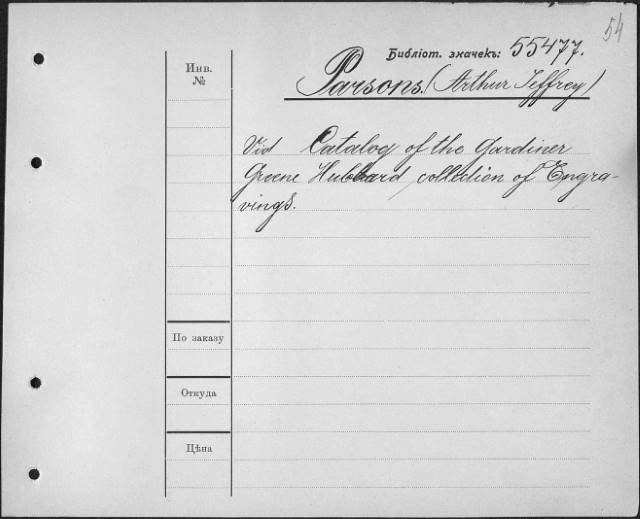 54
Библіот. значекъ: 55477.
Инв.
№
Parsons. (Arthur Jeffrey)
Vid Catalog of the Gardiner
Greene Hubbard collection of Engra-
vings.
По заказу
Откуда
Цѣна